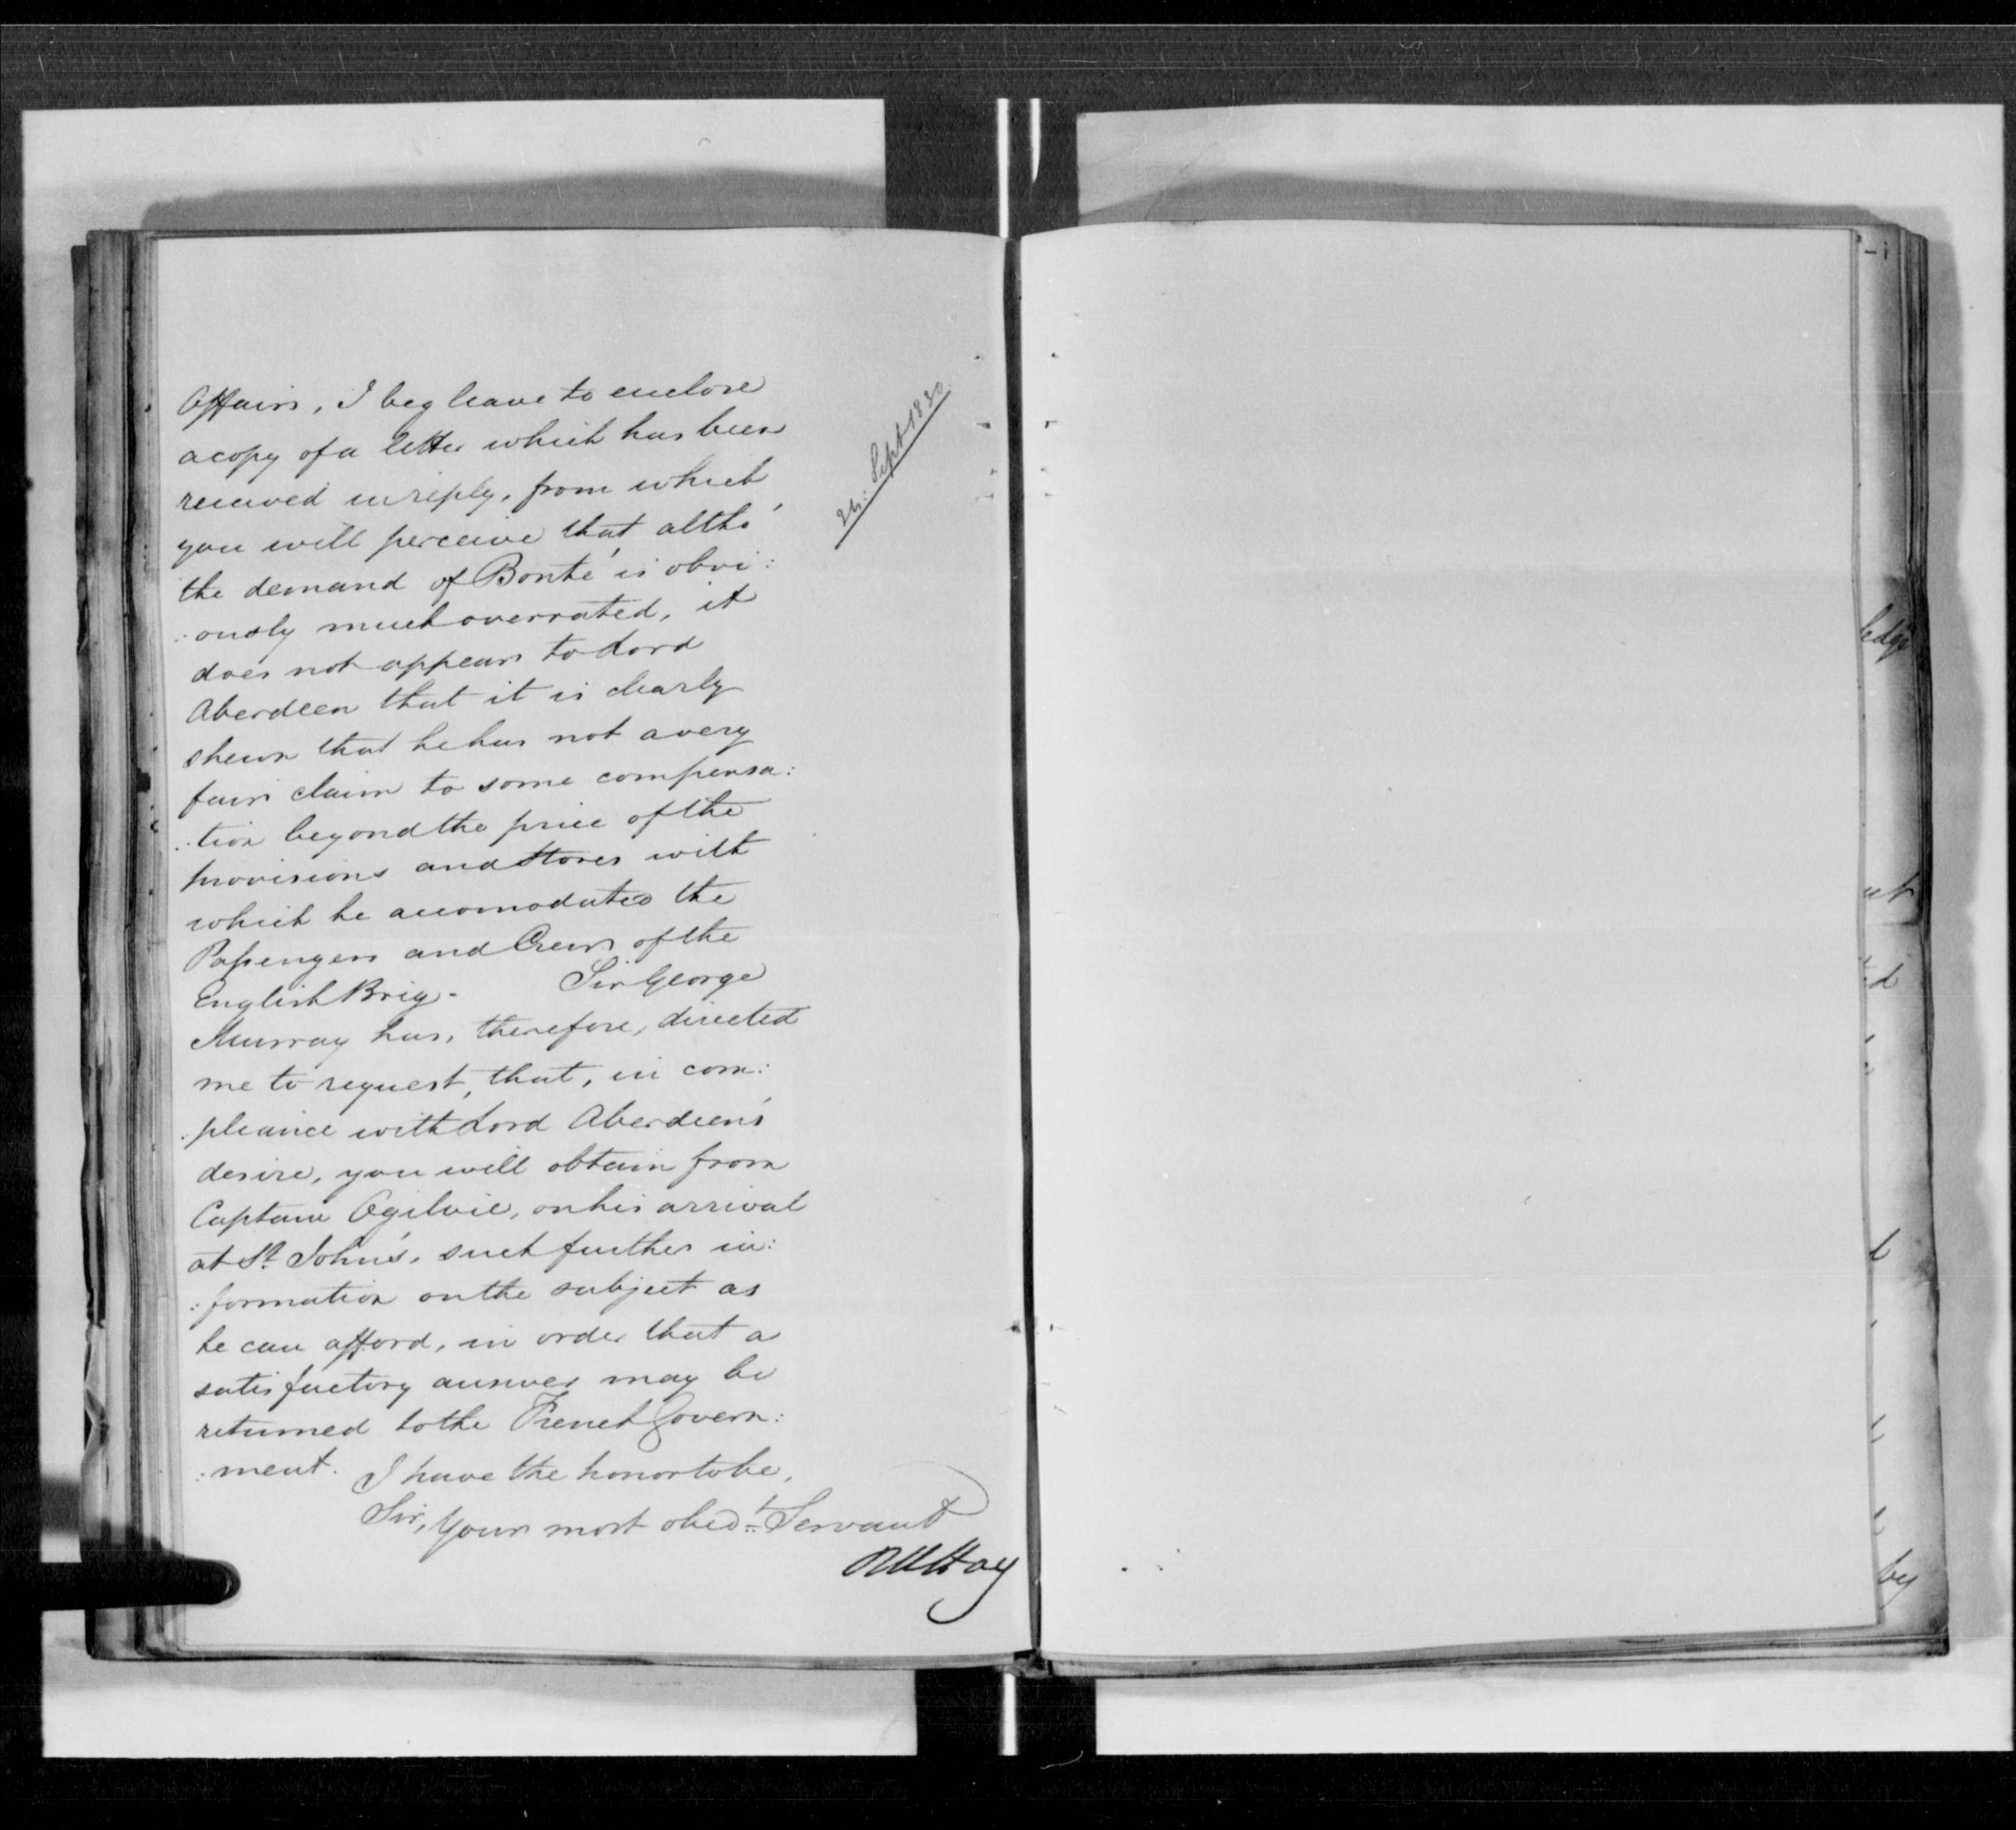 Affairs, I beg leave to enclose
a copy of a letter which has been
received in reply, from which
you will perceive that altho'
the demand of Bonté is obvi:
:ously much overrated, it
does not appear to Lord
Aberdeen that it is clearly
shewn that he has not a very
fair claim to some compensa:
:tion beyond the price of the
provisions and Stores with
which he accomodated the
Passengers and Crew of the
English Brig - Sir George
Murray has, therefore, directed
me to request, that, in com:
:pliance with Lord Aberdeen's
desire, you will obtain from
Captain Ogilvie, on his arrival
at St. John's, such further in:
:formation on the subject as
he can afford, in order that a
satisfactory answer may be
returned to the French Govern:
:ment. I have the honor to be,
Sir, Your most obedt. Servant
RWHay
24: Sept 1830
ledge
by